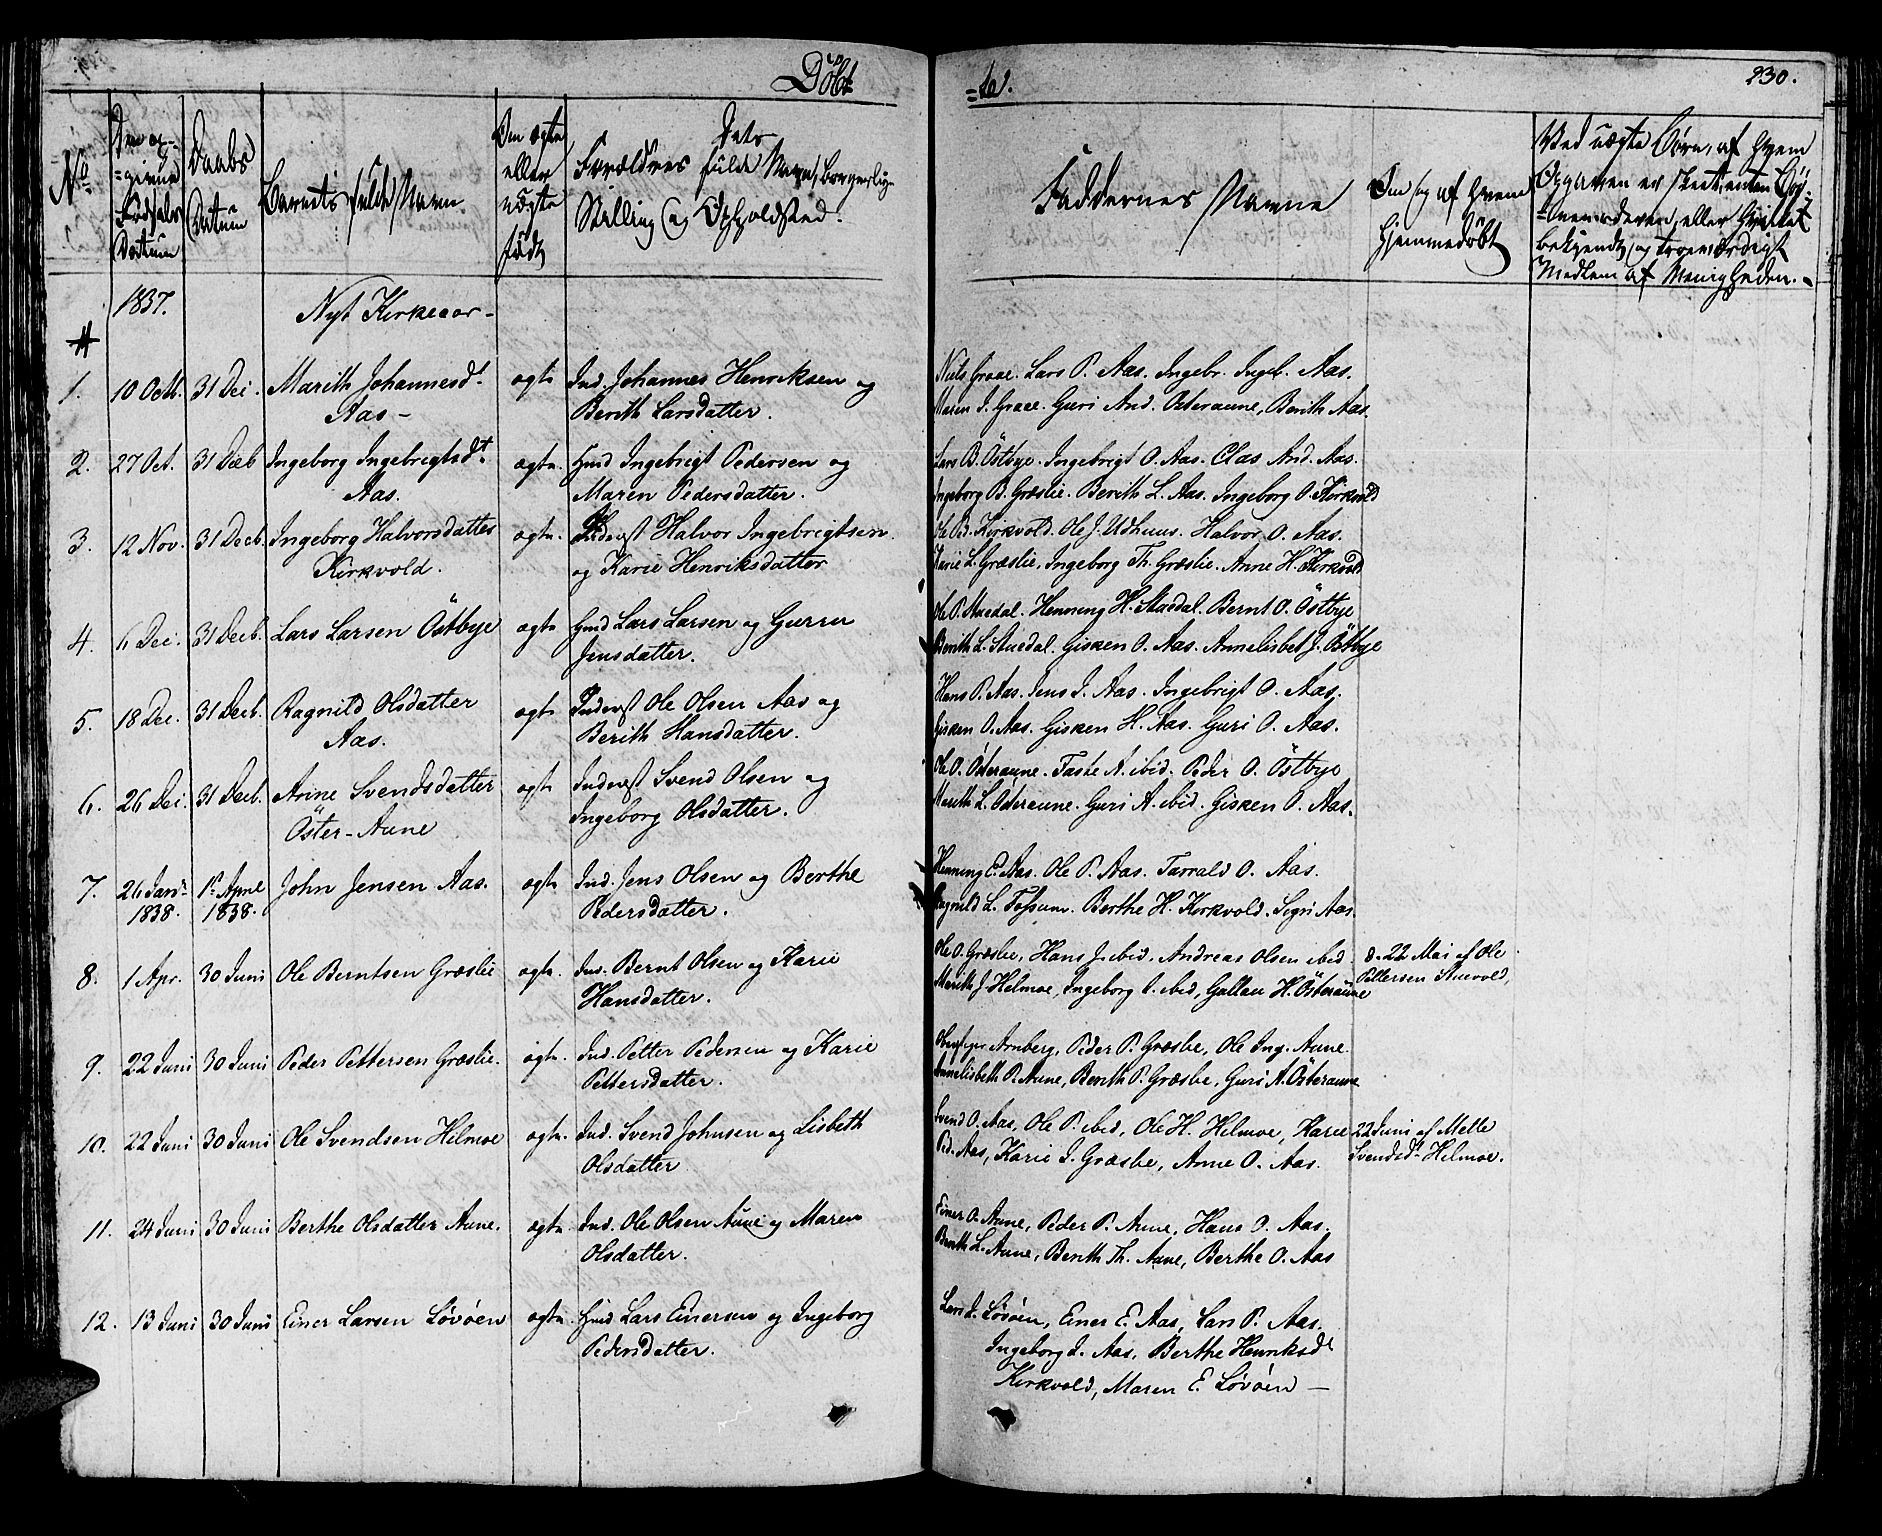 Döbt
=te.
230.
No
Den an-
=givne
Födsels
Datum
Daabs
Datum
Barnets fulde Navn
Om ægte
eller
uægte
född
Dets
Forældres fulde Navn, borgerlige
Stilling og Opholdsted.
Faddernes Navne
Om og af hvem
hjemmedöbt
Ved uægte Börn, af hvem
Opgaven er skeet enten Gjor-
=nemoderen, eller hvilket
bekjendt og troeværdigt
Medlem af Menigheden.
1837.
Nyt Kirkeaar-
1. 10 Octb. 31 Dec. Marith Johannesdt. ægte Ind. Johannes Henriksen og
Aas- Berith Larsdatter.
Niels Graae. Lars P. Aas. Ingebr. Ingeb. Aas.
Maren I. Graae. Guri And. Osteraune, Berith Aas.
2. 27 Oct. 31 Deb Ingeborg Ingebrigtsdt. ægte. Hmd Ingebrigt Pedersen og
Aas. Maren Pedersdatter.
Lars B. Östbye. Ingebrigt O. Aas. Clas And. Aas.
Ingeborg B. Græslie. Berith L. Aas. Ingeborg O. Kirkvold
3. 12 Nov. 31 Decb. Ingeborg Halvorsdatter ægte. Inderst Halvor Ingebrigtsen
Kirkvold. og Karie Henriksdatter
Ole B. Kirkvold. Ole J. Udhuus. Halvor O. Aas.
Karie L. Græslie, Ingeborg Th. Græslie. Anne H. Kirkvold
4. 6 Dec. 31 Decb. Lars Larsen Östbye ægte Hmd Lars Larsen og Gurru
Jensdatter.
Ole P. Stuedal. Henning H. Stuedal. Bernt O. Östbye
Berith L. Stuedal. Gisken O. Aas. Annelisbet J. Östbye
5. 18 Dec. 31 Decb. Ragnild Olsdatter ægte Inderst Ole Olsen Aas og
Aas. Berith Hansdatter.
Hans P. Aas. Jens J. Aas. Ingebrigt O. Aas.
Gisken O. Aas. Gisken H. Aas. Guri O. Aas.
6. 26 Dec. 31 Decb. Anne Svendsdatter ægte Inderst Svend Olsen og
Öster-Aune Ingeborg Olsdatter.
Ole O. Österaune. Taste A. ibid. Peder O. Östbye
Marith L. Osteraune. Guri A. ibid. Gisken O. Aas.
7. 26 Janr. 1ste Apre John Jensen Aas. ægte Ind. Jens Olsen og Berthe
1838. 1838. Pedersdatter.
Henning E. Aas. Ole P. Aas. Tarrald O. Aas.
Ragnild L. Fossum. Berthe H. Kirkvold. Sigri Aas.
8. 1 Apr. 30 Juni Ole Berntsen Græslie ægte. Ind. Bernt Olsen og Karie
Hansdatter.
Ole O. Græslie, Hans J. ibid. Andreas Olsen ibid. d. 22 Mai af Ole
Marith J. Helmoe, Ingeborg O. ibid, Gullau H. Österaune Pettersen Stuevold,
9. 22 Juni 30 Juni Peder Pettersen Græslie. ægte. Ind. Petter Pedersen og Karie
Pettersdatter.
Arnberg, Peder P. Græslie, Ole Ing. Aune.
Annelisbeth P. Aune, Berith P. Græslie, Guri A. Österaune
10. 22 Juni 30 Juni Ole Svendsen Hilmoe ægte. Ind. Svend Johnsen og Lisbeth
Olsdatter.
Svend O. Aas, Ole P. ibid, Ole H. Hilmoe, Karie 22 Juni af Mette
Ped. Aas, Karie I. Græslie, Anne O. Aas. Svendsdt. Helmoe.
11. 24 Juni 30 Juni Berthe Olsdatter Aune. ægte. Ind. Ole Olsen Aune og Maren
Olsdatter.
Einer O. Aune, Peder P. Aune, Hans O. Aas.
Berith L. Aune, Berith Th. Aune, Berthe O. Aas
12. 13 Juni 30 Juni Einer Larsen Lövöen ægte. Hmd Lars Einersen og Ingeborg
Pedersdatter.
Lars I. Lövöen, Einer E. Aas, Lars P. Aas.
Ingeborg I. Aas, Berthe Henriksdt
Kirkvold, Maren E. Lövöen -